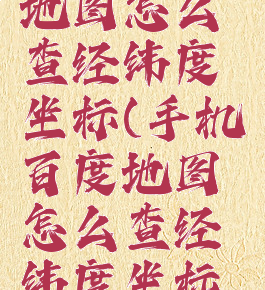 地图怎么
查经纬度
坐标(手机
百度地图
怎么查经
纬度坐标